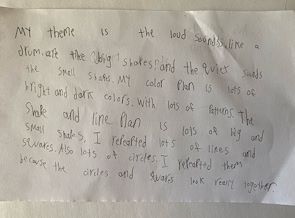 My theme is the loud sounds. line a
drum. are the big shapes. and the quiet sounds
the small shapes. My color Plan is lots of
bright and dark colors. with lots of Patterns. The
Shape and line Plan is lots of big and
small shapes. I repeated lots of lines and
squares. Also lots of circles. I repeated them
because the circles and squares look really together.